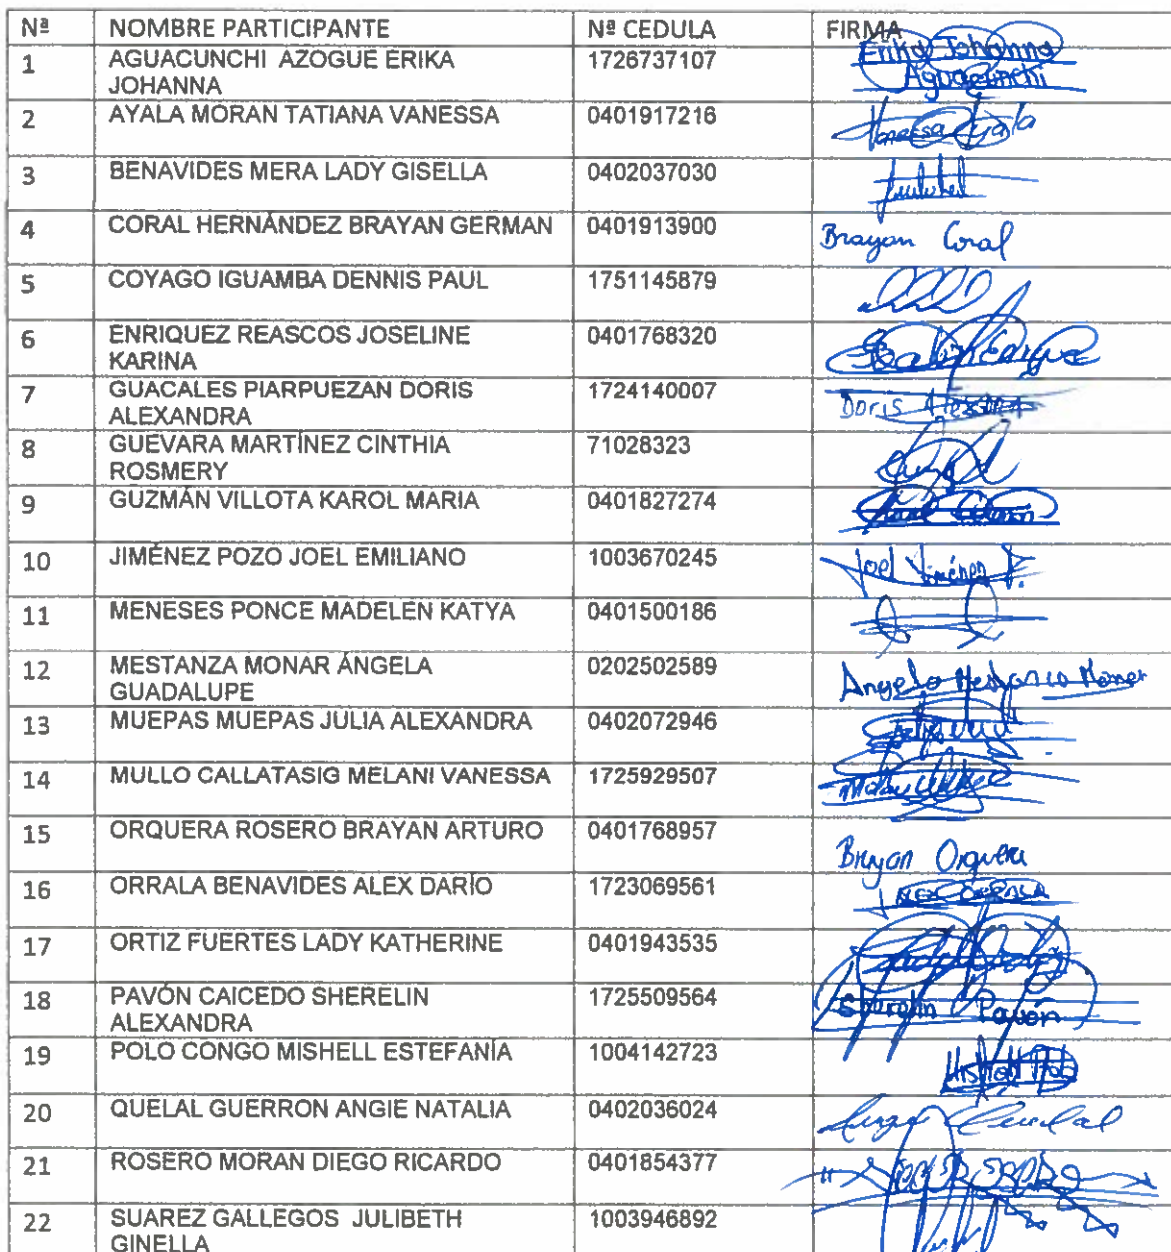 Nª NOMBRE PARTICIPANTE Nª CEDULA FIRMA
1 AGUACUNCHI AZOGUE ERIKA 1726737107 Erika Johanna
JOHANNA Aguacunchi
2 AYALA MORAN TATIANA VANESSA 0401917216 Vanessa Ayala
3 BENAVIDES MERA LADY GISELLA 0402037030
4 CORAL HERNÁNDEZ BRAYAN GERMAN 0401913900 Brayan Coral
5 COYAGO IGUAMBA DENNIS PAUL 1751145879
6 ENRIQUEZ REASCOS JOSELINE 0401768320
KARINA
7 GUACALES PIARPUEZAN DORIS 1724140007 Doris
ALEXANDRA
8 GUEVARA MARTÍNEZ CINTHIA 71028323
ROSMERY
9 GUZMÁN VILLOTA KAROL MARIA 0401827274
10 JIMÉNEZ POZO JOEL EMILIANO 1003670245 Joel Jiménez P.
11 MENESES PONCE MADELEN KATYA 0401500186
12 MESTANZA MONAR ÁNGELA 0202502589 Angela Mestanza Monar
GUADALUPE
13 MUEPAS MUEPAS JULIA ALEXANDRA 0402072946
14 MULLO CALLATASIG MELANI VANESSA 1725929507
15 ORQUERA ROSERO BRAYAN ARTURO 0401768957 Brayan Orquera
16 ORRALA BENAVIDES ALEX DARÍO 1723069561
17 ORTIZ FUERTES LADY KATHERINE 0401943535
18 PAVÓN CAICEDO SHERELIN 1725509564 Sherelin Pavón
ALEXANDRA
19 POLO CONGO MISHELL ESTEFANÍA 1004142723
20 QUELAL GUERRON ANGIE NATALIA 0402036024
21 ROSERO MORAN DIEGO RICARDO 0401854377
22 SUAREZ GALLEGOS JULIBETH 1003946892
GINELLA